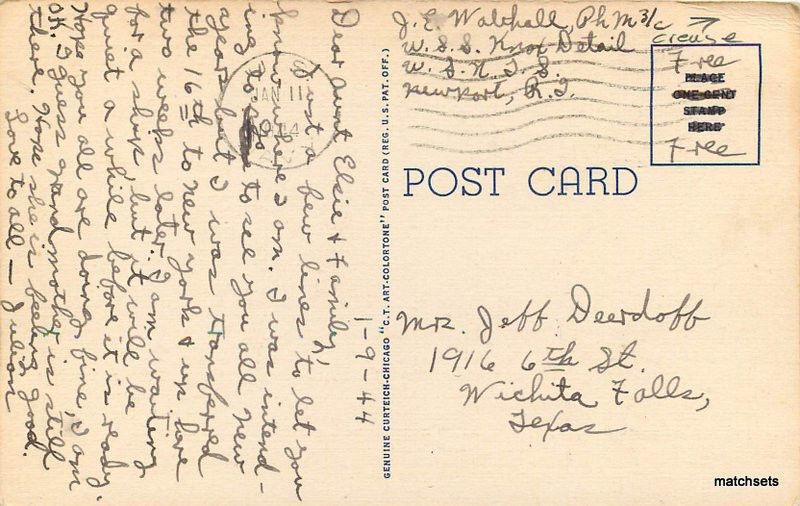 1-9-44
Dear Aunt Elsie & Family,
Just a few lines to let you
know where I am. I was intend-
ing to to see you all New
years but I was transferred
the 16th to New York & up here
two weeks later. I am waiting
for a ship, but it will be
quiet a while before it is ready.
Hope you all are doing fine, I am
OK. I guess Grandmother is still
there. Hope she is feeling good.
Love to all —
Julian
JAN 11
1944
GENUINE CURTEICH-CHICAGO "C.T. ART-COLORTONE" POST CARD (REG. U.S. PAT. OFF.)
J. E. Walthall, PhM 3/c
U.S.S. Knox Detail
U.S.N.T.S.
Newport, R.I.
crease
Free
PLACE
ONE CENT
STAMP
HERE
Free
POST CARD
Mrs. Jeff Deerdoff
1916 6th St.
Wichita Falls,
Texas
matchsets